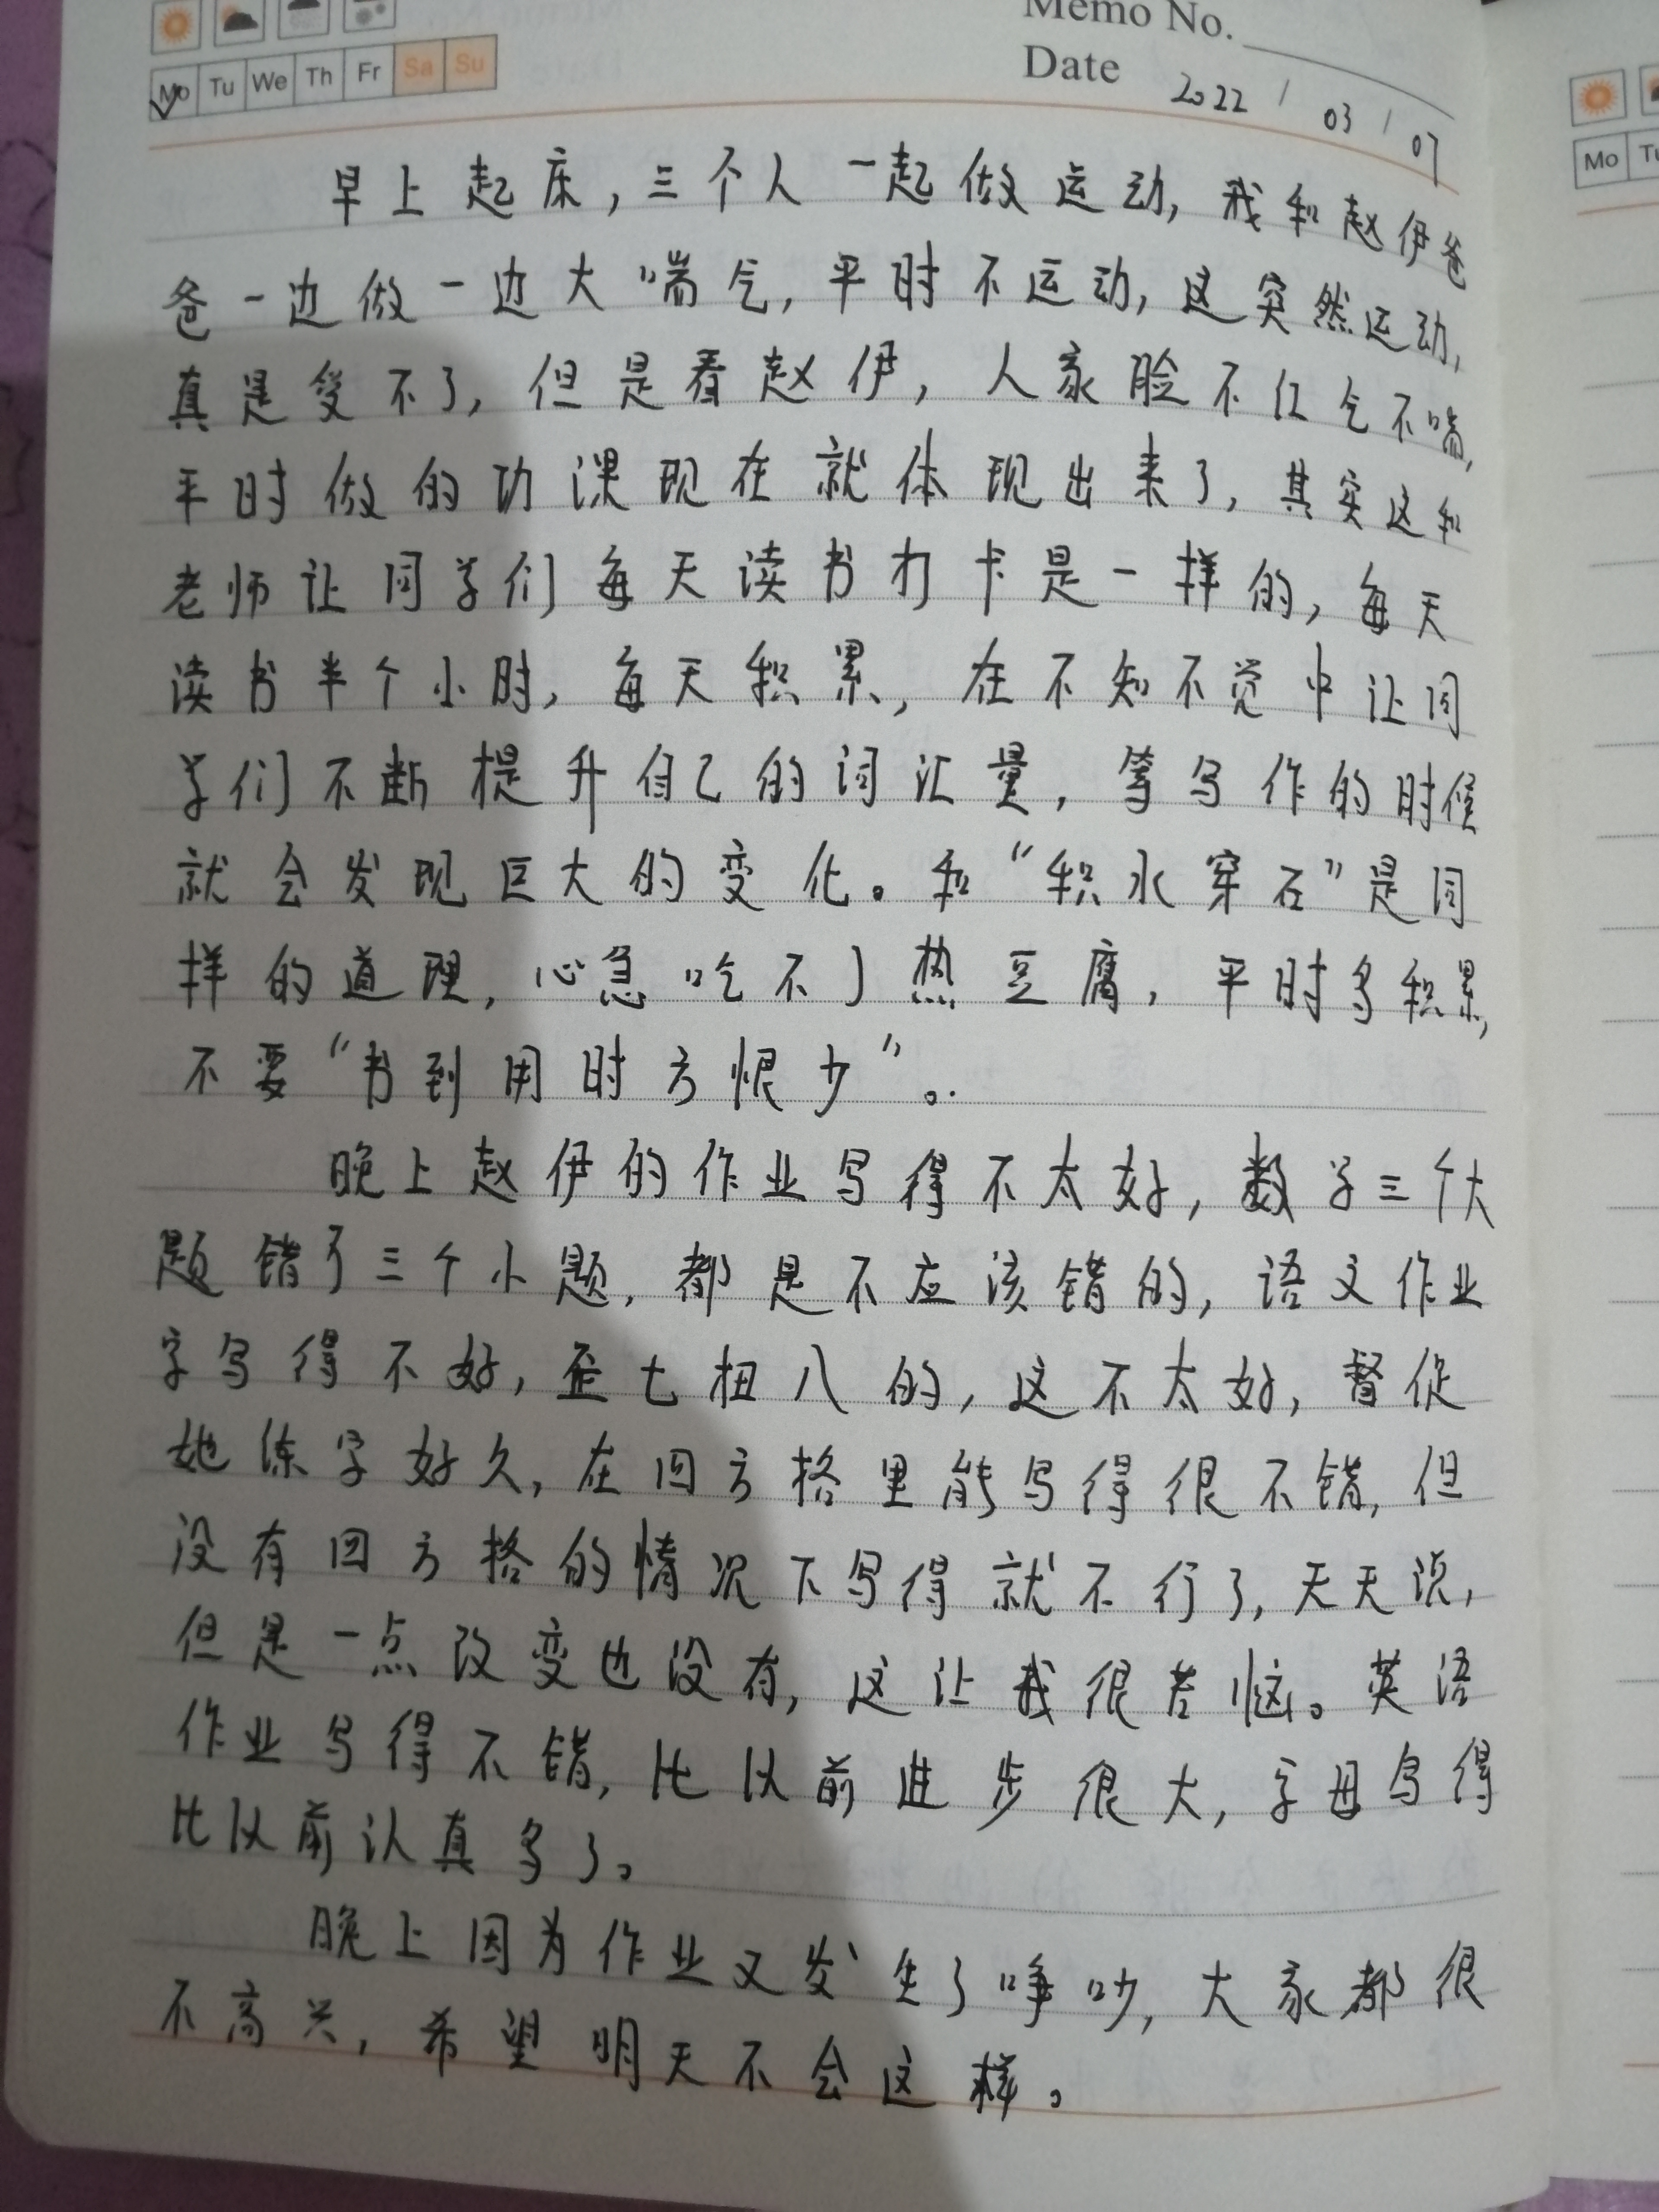 Memo No.
Mo Tu We Th Fr Sa Su
Date 2022 / 03 / 07
早上起床,三个人一起做运动,我和赵伊爸
爸一边做一边大喘气,平时不运动,这突然运动,
真是受不了,但是看赵伊,人家脸不红气不喘,
平时做的功课现在就体现出来了,其实这和
老师让同学们每天读书打卡是一样的,每天
读书半个小时,每天积累,在不知不觉中让同
学们不断提升自己的词汇量,等写作的时候
就会发现巨大的变化。和“积水穿石”是同
样的道理,心急吃不了热豆腐,平时多积累,
不要“书到用时方恨少”。
晚上赵伊的作业写得不太好,数学三个大
题错了三个小题,都是不应该错的,语文作业
字写得不好,歪七扭八的,这不太好,督促
她练字好久,在田方格里能写得很不错,但
没有田方格的情况下写得就不行了,天天说,
但是一点改变也没有,这让我很苦恼。英语
作业写得不错,比以前进步很大,字母写得
比以前认真多了。
晚上因为作业又发生了争吵,大家都很
不高兴,希望明天不会这样。
Mo Tu